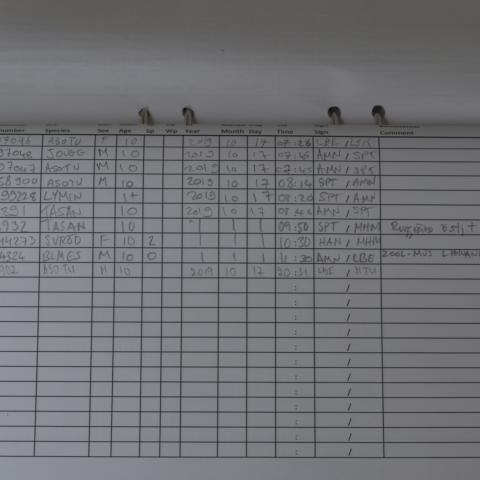 number Species Sex Age Sp Wp Year Month Day Time Sign Comment
Sign
ASOTU F 10 2019 10 17 07:26
97048 M 10 2019 10 17 07:45 AMN / SPT
97047 ASOTU M 10 2019 10 17 07:45 AMN / SPT
58900 ASOTU M 10 2019 10 17 08:14 SPT / AMN
99228 LYMIN 1+ 2019 10 17 08:20 SPT / AMN
891 TASAN 10 2019 10 17 AMN / SPT
932 TASAN 10 | | | 09:50 SPT / MHM
14273 SUROD F 10 2 | | | 10:30 HAN / MHM
4324 BLMES M 10 0 | | | 11:30 AMN / LBE ZOOL. MUS
902 ASOTU M 10 2019 10 17 20:31 LBE / MTU
: /
: /
: /
: /
: /
: /
: /
: /
: /
: /
: /
: /